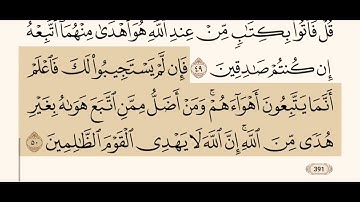 قُلْ فَأْتُوا۟ بِكِتَٰبٍ مِّنْ عِندِ ٱللَّهِ هُوَ أَهْدَىٰ مِنْهُمَآ أَتَّبِعْهُ
إِن كُنتُمْ صَٰدِقِينَ ٤٩ فَإِن لَّمْ يَسْتَجِيبُوا۟ لَكَ فَٱعْلَمْ
أَنَّمَا يَتَّبِعُونَ أَهْوَآءَهُمْ ۚ وَمَنْ أَضَلُّ مِمَّنِ ٱتَّبَعَ هَوَىٰهُ بِغَيْرِ
هُدًى مِّنَ ٱللَّهِ ۚ إِنَّ ٱللَّهَ لَا يَهْدِى ٱلْقَوْمَ ٱلظَّٰلِمِينَ ٥٠
391